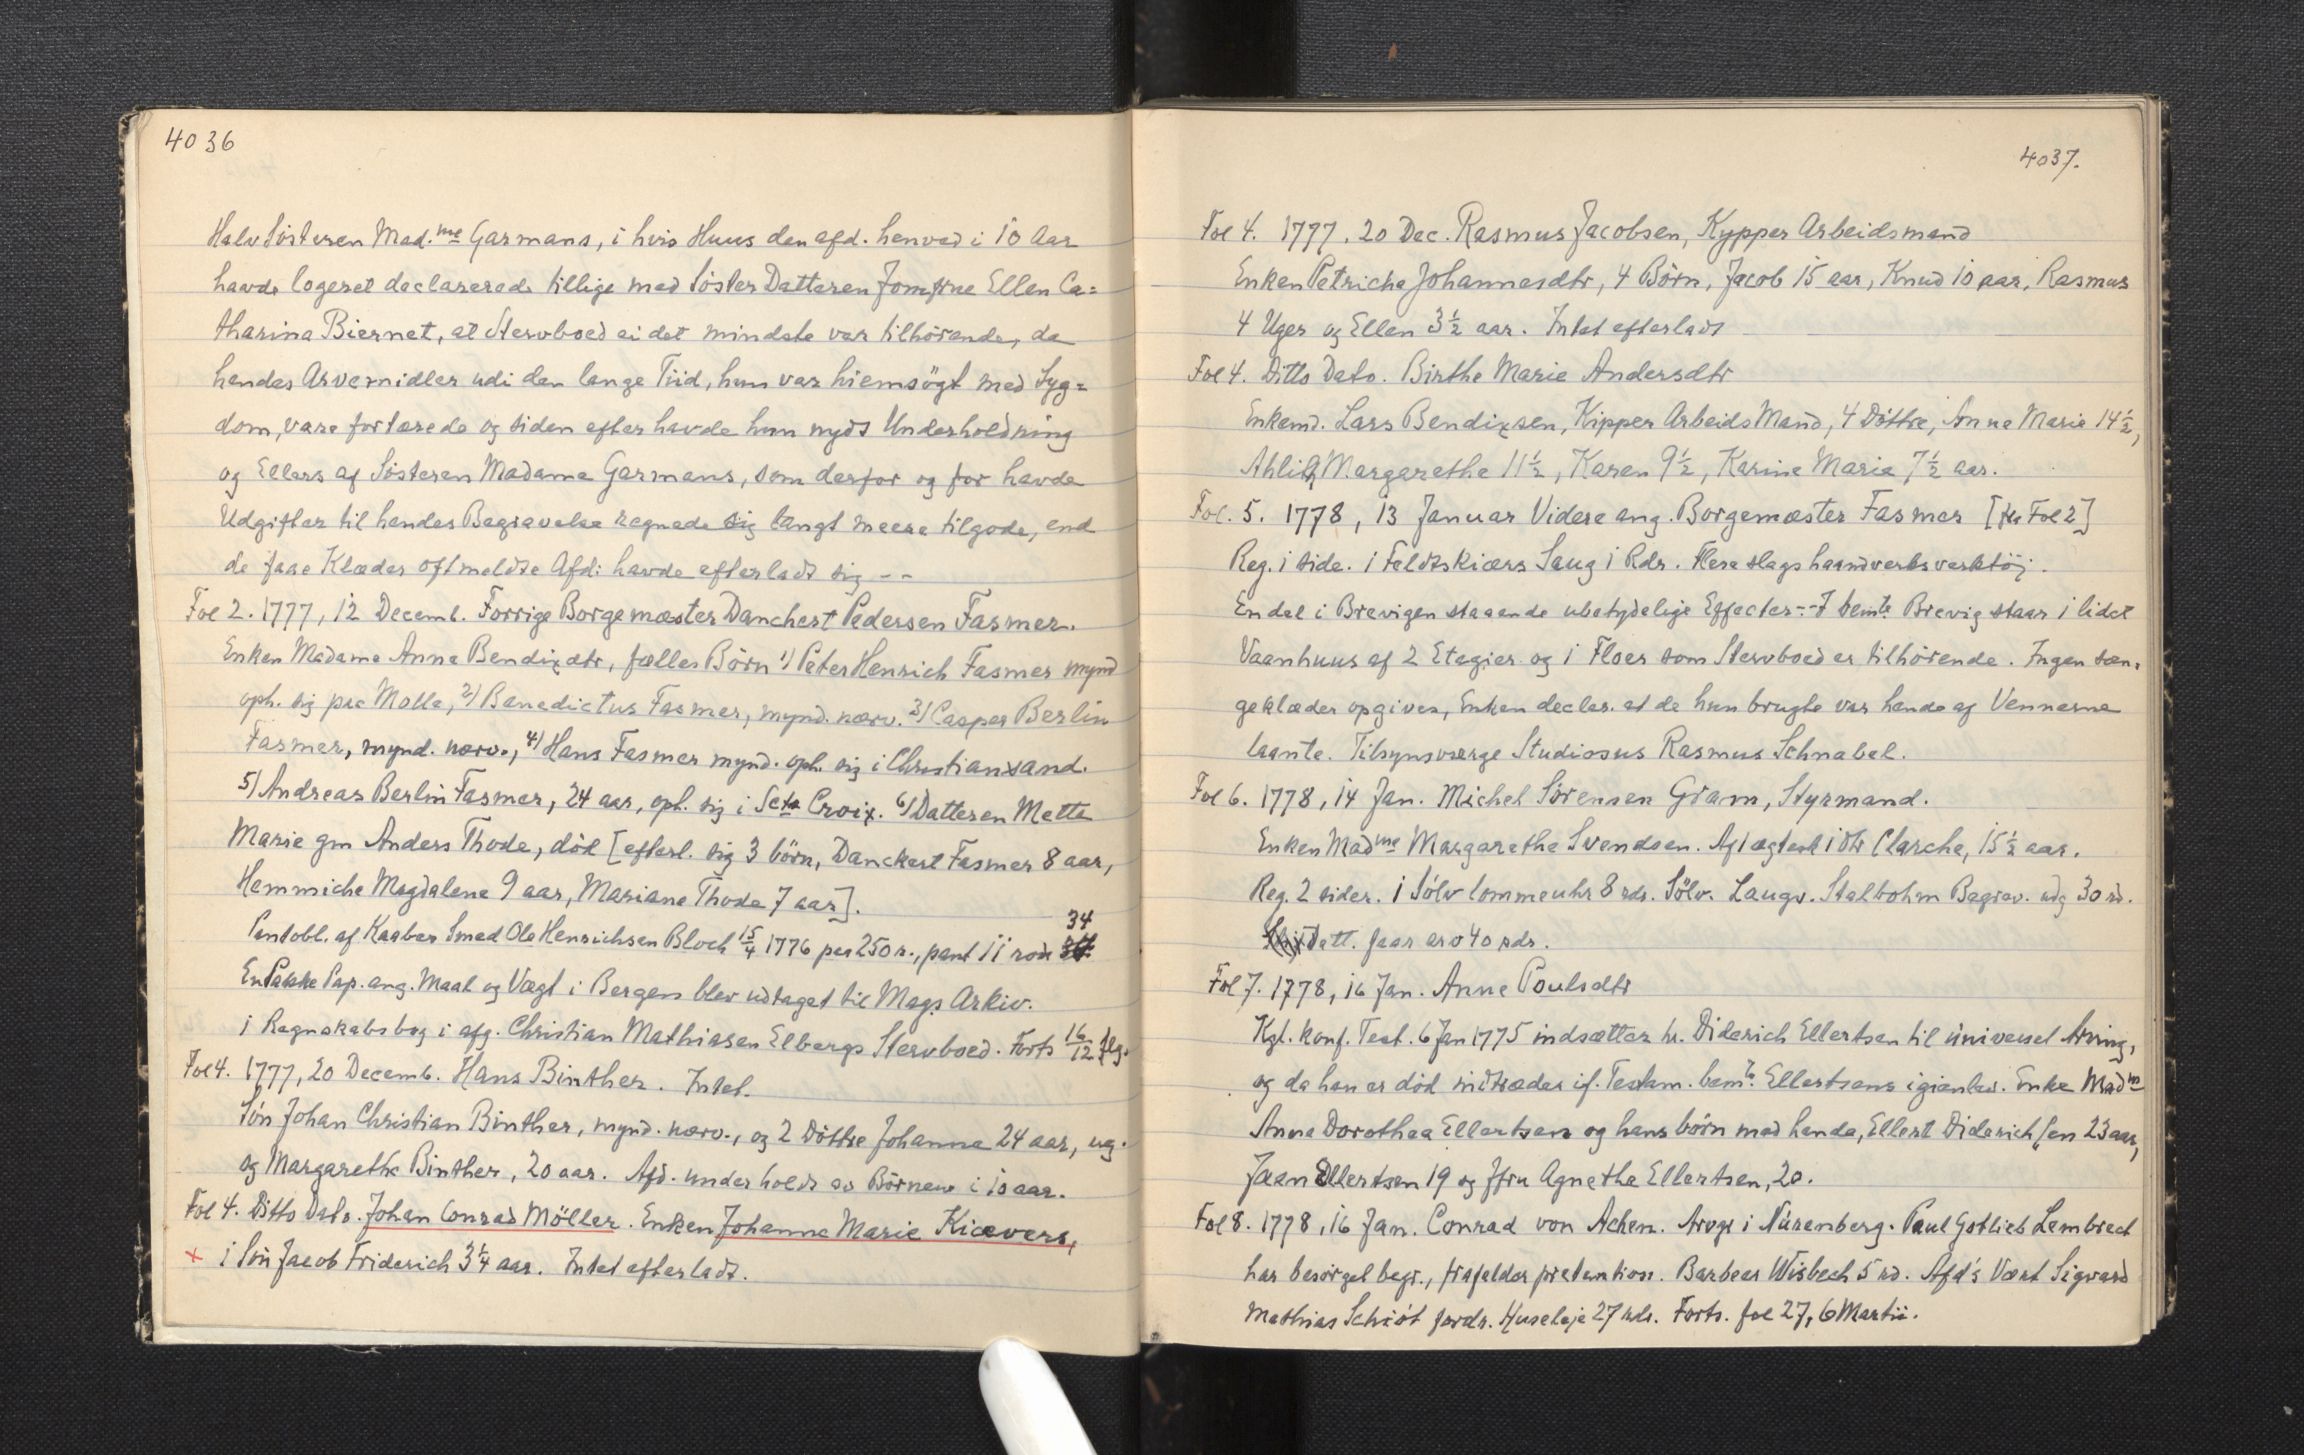 4036
HalvSösteren Mad.me Garmans, i hvis Huus den afd. henved i 10 Aar
havde logeret declarerede tillige med Söster Datteren Jomfrue Ellen Ca=
tharina Biernet, at Stervboed ei det mindste var tilhörende, da
hendes Arvemidler udi den lange Tiid, hun var hiemsögt med Syg=
dom, vare fortærede og siden efter havde hun nydt Underholdning
og Ellers af Sösteren Madame Garmans, som derfor og for havde
Udgifter til hendes Begravelse regnede sig langt meere tilgode, end
de faae Klæder oftmeldte Afd: havde efterladt sig --
Fol 2. 1777, 12 Decemb. Forrige Borgemæster Danchert Pedersen Fasmer.
Enken Madame Anna Bendixdtr, fælles Börn 1) Peter Henrich Fasmer mynd
oph. sig paa Molle, 2) Benedictus Fasmer, mynd. nærv. 3) Casper Berlin
Fasmer, mynd. nærv., 4) Hans Fasmer mynd. oph. sig i Christiansand.
5) Andreas Berlin Fasmer, 24 aar, oph. sig i Scta Croix. 6) Datteren Mette
Marie gm Anders Thode, död [efterl. sig 3 börn, Danckert Fasmer 8 aar,
Hemmiche Magdalene 9 aar, Mariane Thode 7 aar].
Pantobl. af Kaaber Smed Ole Henrichsen Bloch 15/4 1776 paa 250 r., pant 11 rode 34
En Pakke Pap. ang. Maal og Vægt i Bergen blev udtaget til Mags Arkiv.
1 Regnskabsbog i afg. Christian Mathiasen Elbergs Stervboed. Forts 16/12 flg.
Fol 4. 1777, 20 Decemb. Hans Binther. Intet.
Sön Johan Christian Binther, mynd. nærv., og 2 Döttre Johanna 24 aar, ug.
og Margarethe Binther, 20 aar. Afd. underholdt av Börnene i 10 aar.
Fol 4. Ditto Dato. Johan Conrad Möller. Enken Johanne Marie Kiævers,
x 1 Sön Jacob Friderich 3 1/4 aar. Intet efterladt.
4037.
Fol 4. 1777. 20 Dec. Rasmus Jacobsen, Kypper Arbeidsmand
Enken Petricha Johannesdtr, 4 Börn, Jacob 15 aar, Knud 10 aar, Rasmus
4 Uger og Ellen 3 1/2 aar. Intet efterladt
Fol 4. Ditto Dato. Birthe Marie Andersdtr
Enkemd. Lars Bendixsen, Kipper Arbeids Mand, 4 Döttre, Anne Marie 14 1/2,
Margarethe 11 1/2, Karen 9 1/2, Karine Marie 7 1/2 aar.
Fol. 5. 1778, 13 Januar Videre ang. Borgemæster Fasmer [fra Fol 2]
Reg. 1 side. 1 Feldtskiærs Saug 1 Rdr. Flere slags haandverksverktöj.
En del i Brevigen staaende ubetydelige Effecter -- I bemte Brevig staar 1 lidet
Vaanhuus af 2 Etagier og 1 Floer som Stervboed er tilhörende. Ingen sæn=
geklæder opgives, Enken declar. at de hun brugte var hende af Vennerne
laante. Tilsynsværge Studiosus Rasmus Schnabel.
Fol 6. 1778, 14 Jan. Michel Sörensen Gram, Styrmand.
Enken Madme Margarethe Svendsen. Aflægtesk 1 Dtr Clarche, 15 1/2 aar.
Reg. 2 sider. 1 Sölv lommeuhr 8 rdr. Sölv. Laugv. Stalbohm Begrav. udg 30 rd.
Datt. faar arv 40 rdr.
Fol 7. 1778, 16 Jan. Anne Poulsdtr
Kgl. konf. Test. 6 Jan 1775 indsætter hr. Diderich Ellertsen til universel Arving,
og da han er död indtræder if. Testam. bemte Ellertsens igienlev. Enke Madm
Anna Dorothea Ellertsen og hans börn med hende, Ellert Diderichsen 23 aar,
Jaen Ellertsen 19 og Jfru Agnethe Ellertsen, 20.
Fol 8. 1778, 16 Jan. Conrad von Achen. Arvgr i Nürenberg. Paul Gotlieb Lembrect
har besörget begr., frafalder pretention. Barbeer Wisbech 5 rd. Afd's Vært Sigvard
Mathias Schiöt fordr. Huseleje 27 rdr. Forts. fol 27, 6 Martii.